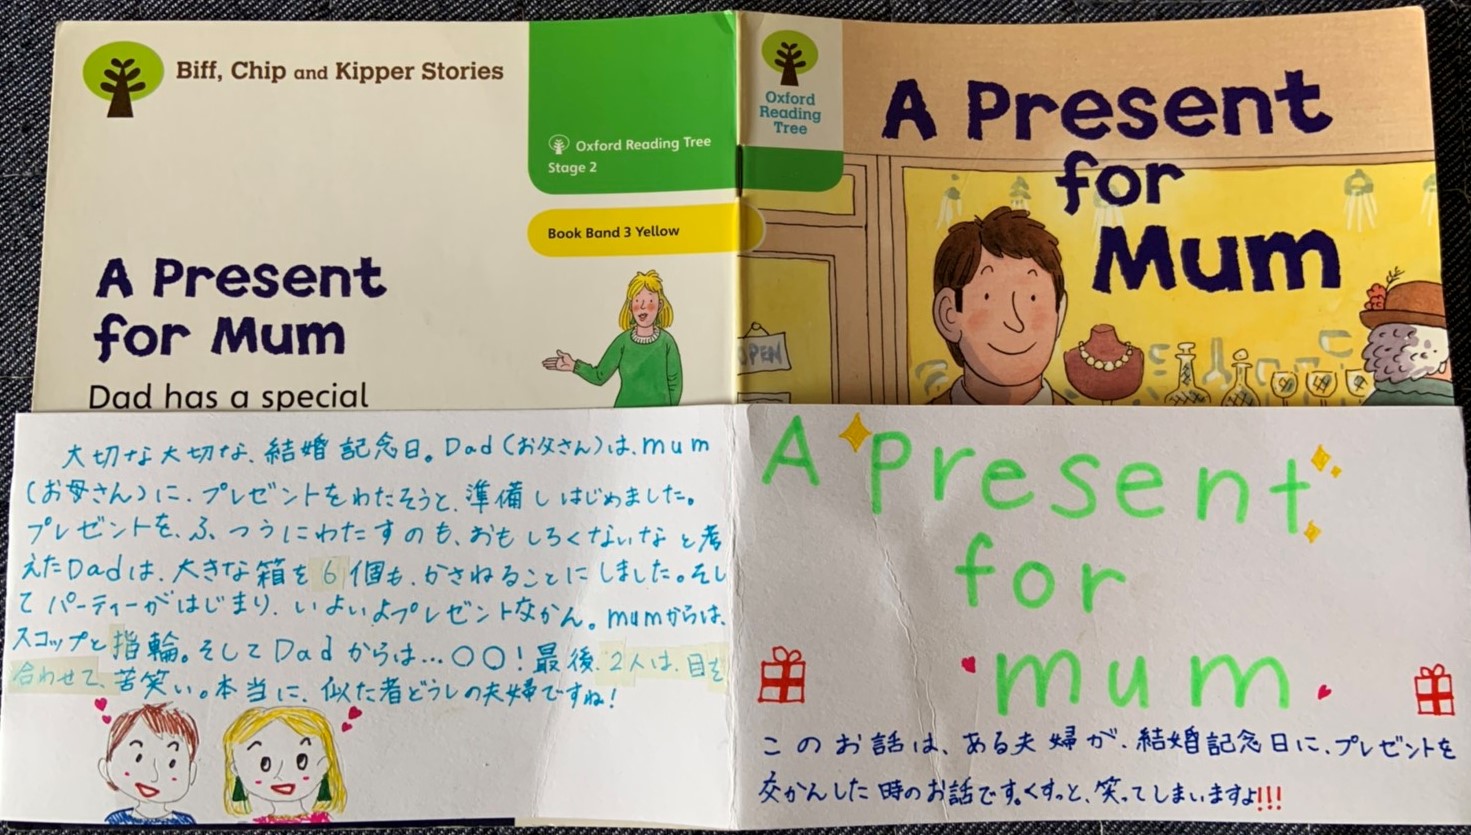 Biff, Chip and Kipper Stories
Oxford Reading Tree
Stage 2
Book Band 3 Yellow
A Present
for Mum
Dad has a special
Oxford
Reading
Tree
A Present
for
Mum
OPEN
大切な大切な、結婚記念日。Dad(お父さん)は、mum
(お母さん)に、プレゼントをわたそうと、準備しはじめました。
プレゼントを、ふつうにわたすのも、おもしろくないなと考
えたDadは、大きな箱を6個も、かさねることにしました。そし
てパーティーがはじまり、いよいよプレゼント交かん。mumからは、
スコップと指輪。そしてDadからは…〇〇!最後、2人は、目を
合わせて、苦笑い。本当に、似た者どうしの夫婦ですね!
A Present
for
mum
このお話は、ある夫婦が、結婚記念日に、プレゼントを
交かんした時のお話です。くすっと、笑ってしまいますよ!!!